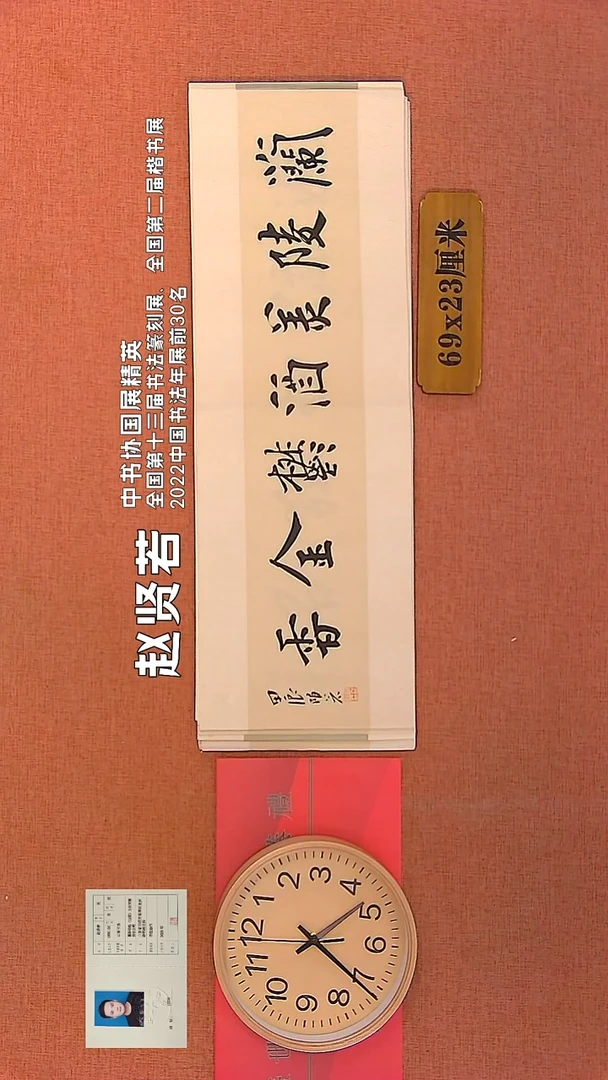 赵贤若
中书协国展精英
全国第十三届书法篆刻展、全国第二届楷书展
2022中国书法年展前30名
蘭陵美酒鬱金香
69x23厘米
禮
12
1
2
3
4
5
6
7
8
9
10
11